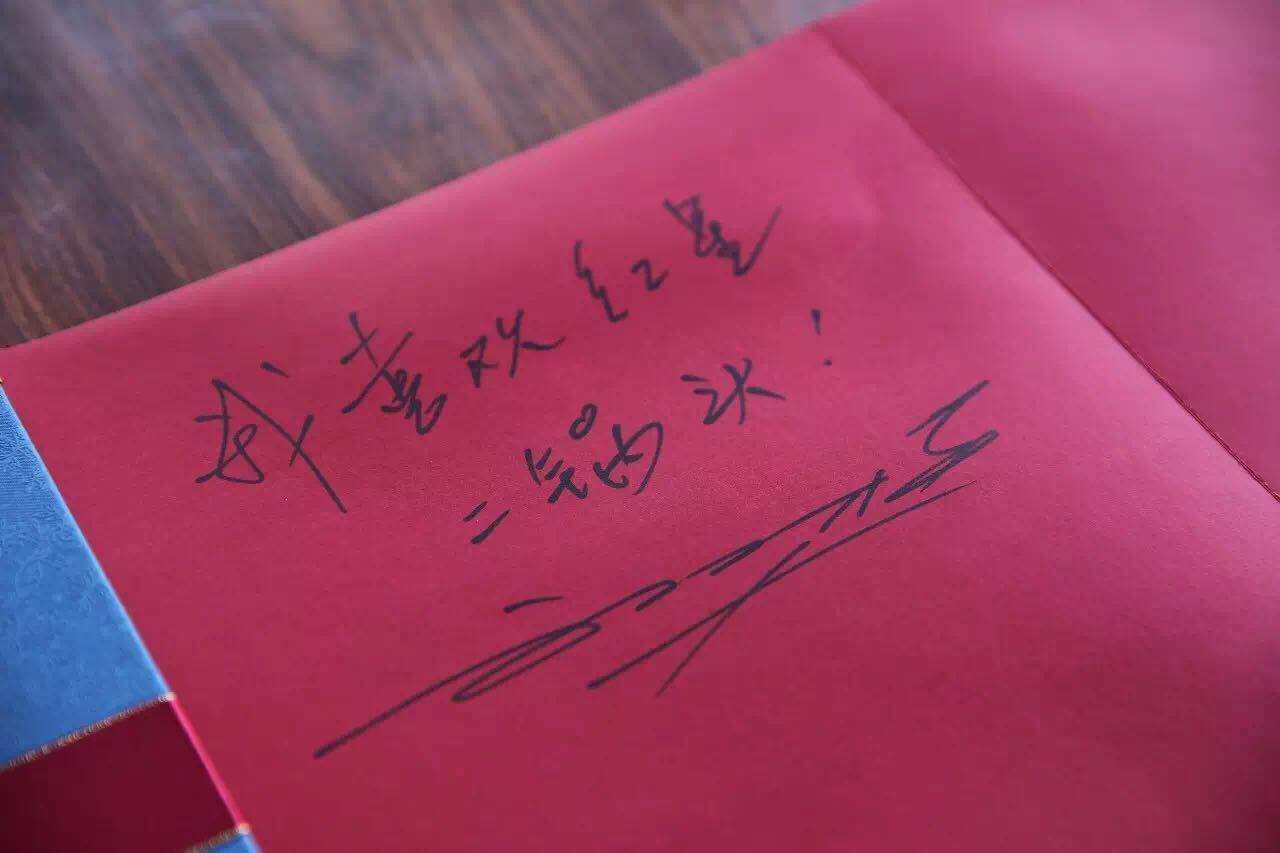 我喜欢红星
二锅头!